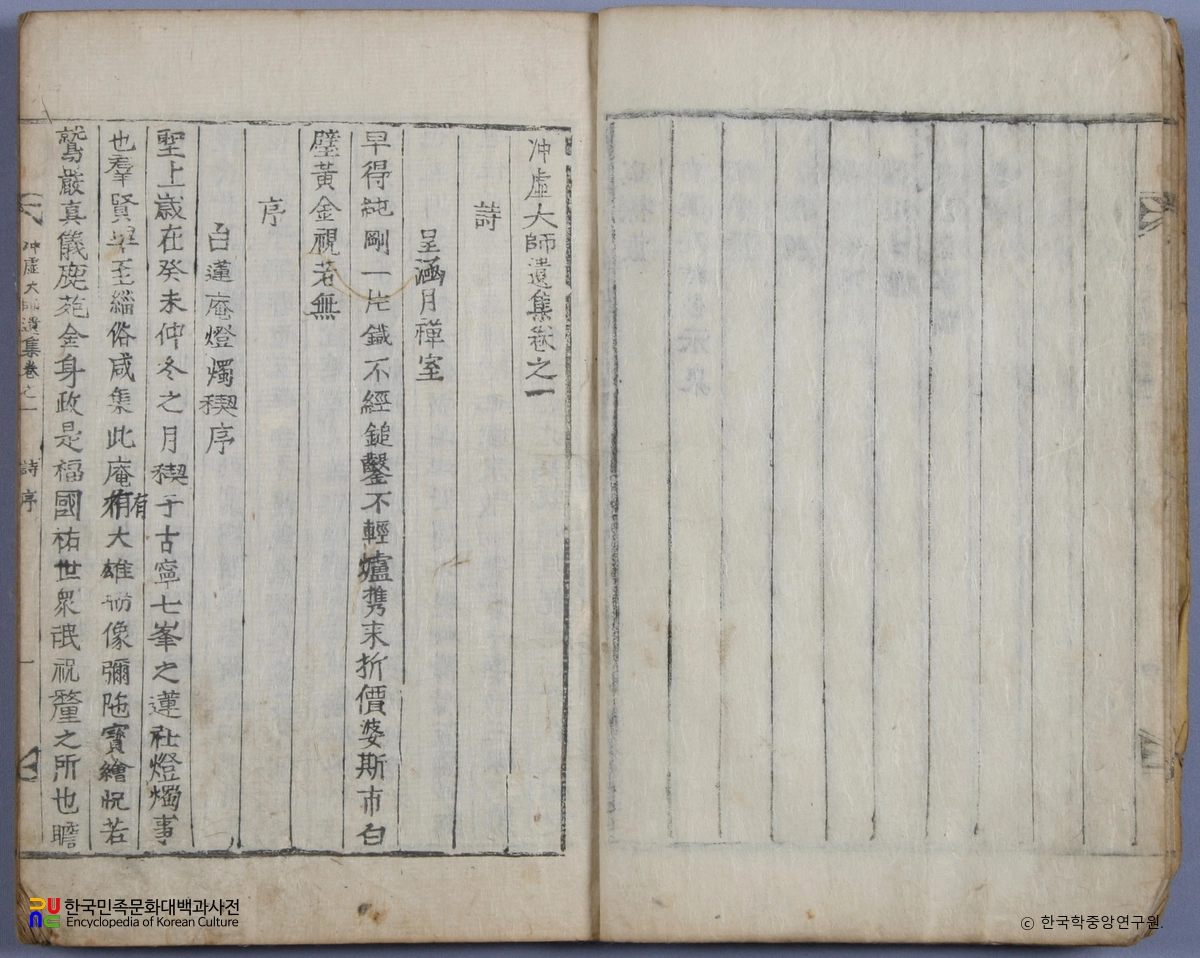 冲虛大師遺集卷之一
詩
呈涵月禪室
早得純剛一片鐵不經鎚鑿不輕爐携来折價婆斯市白
壁黃金視若無
序
白蓮庵燈燭稧序
聖上歲在癸未仲冬之月稧于古寧七峯之蓮社燈燭事
也羣賢畢至緇俗咸集此庵有大雄𭅺像彌陁寶繪怳若
有
鷲嚴真儀鹿苑金身政是福國祐世衆氓祝釐之所也瞻
冲虛大師遺集卷之一 詩 序 一
한국민족문화대백과사전
Encyclopedia of Korean Culture
ⓒ 한국학중앙연구원.